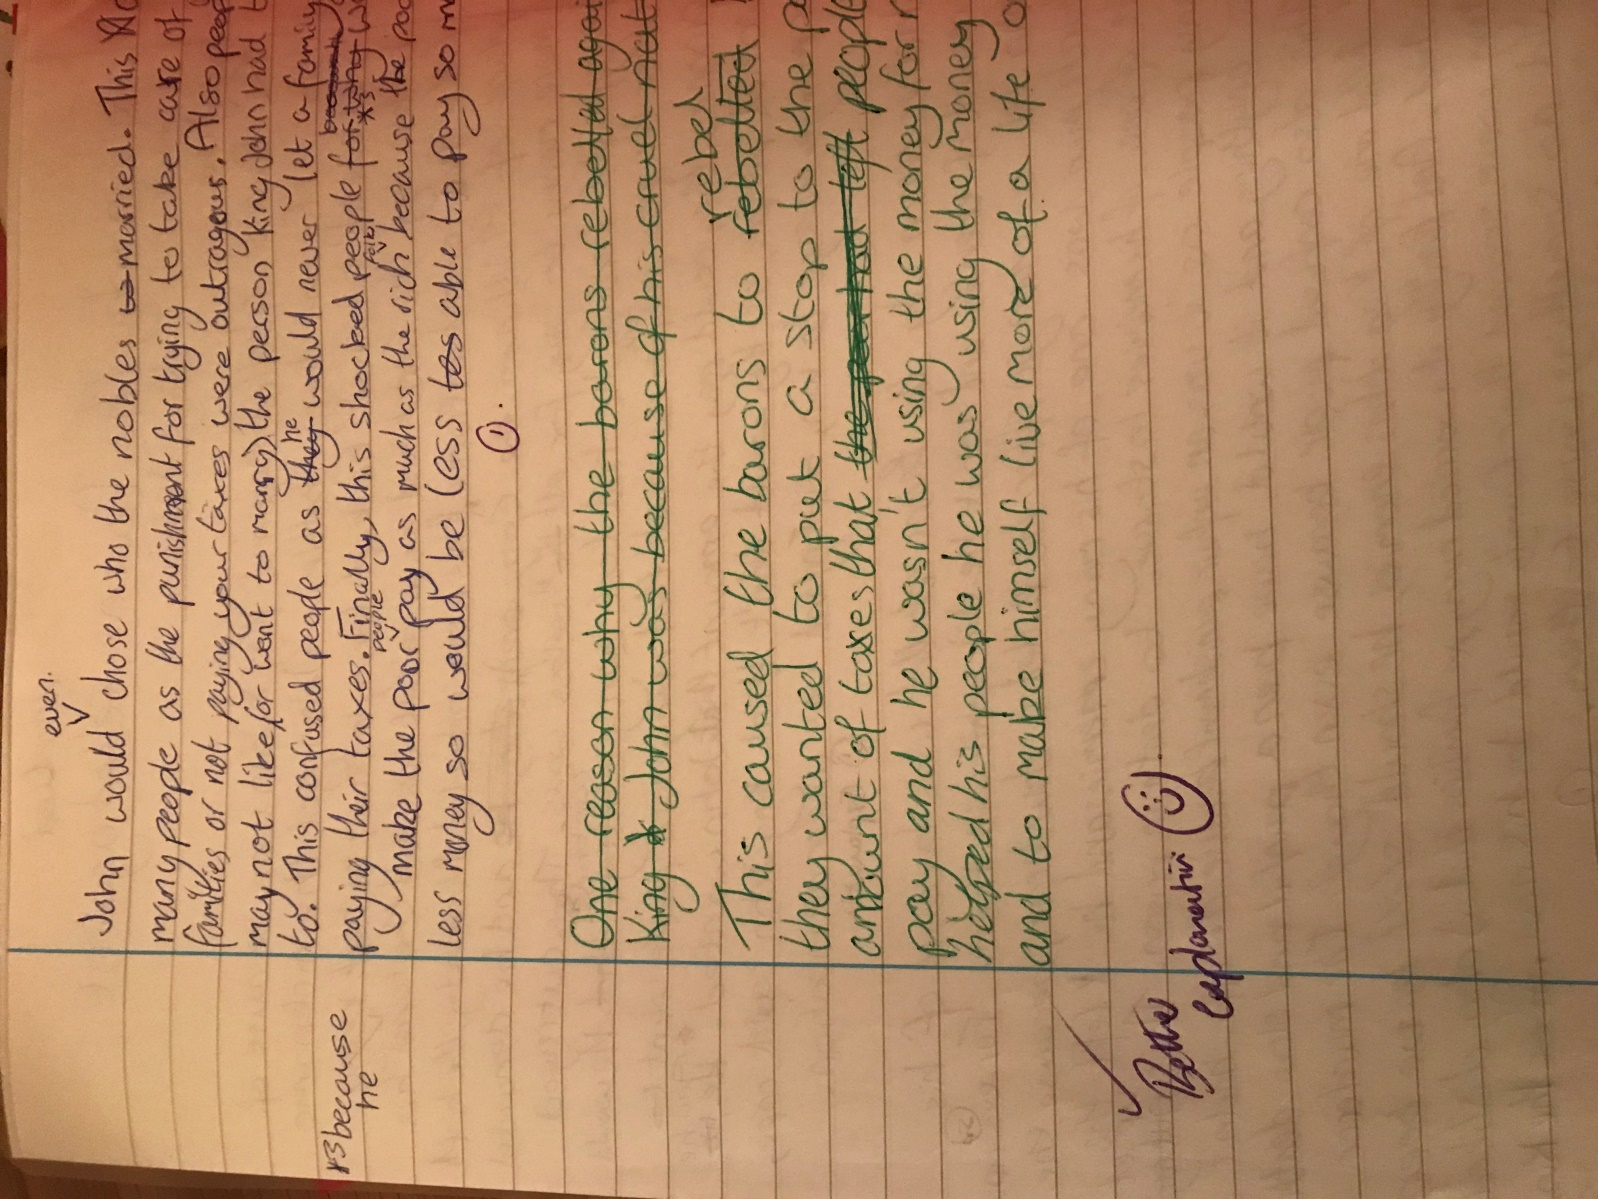 even.
John would chose who the nobles to married. This
many people as the punishment for trying to take care of
families or not paying your taxes were outrageous. Also peop
may not like, (or want to marry) the person King John had t
to. This confused people as they he would never let a family
*3 because he
paying their taxes. Finally, this shocked people for *3
make the poor people pay as much as the rich because the poo
less money so would be less les able to pay so m
1.
One reason why the barons rebelled again
King John was because of his cruel
This caused the barons to rebelled rebel
they wanted to put a stop to the p
amount of taxes that people
pay and he wasn't using the money for
helped his people he was using the money
and to make himself live more of a life o
Better
explanation